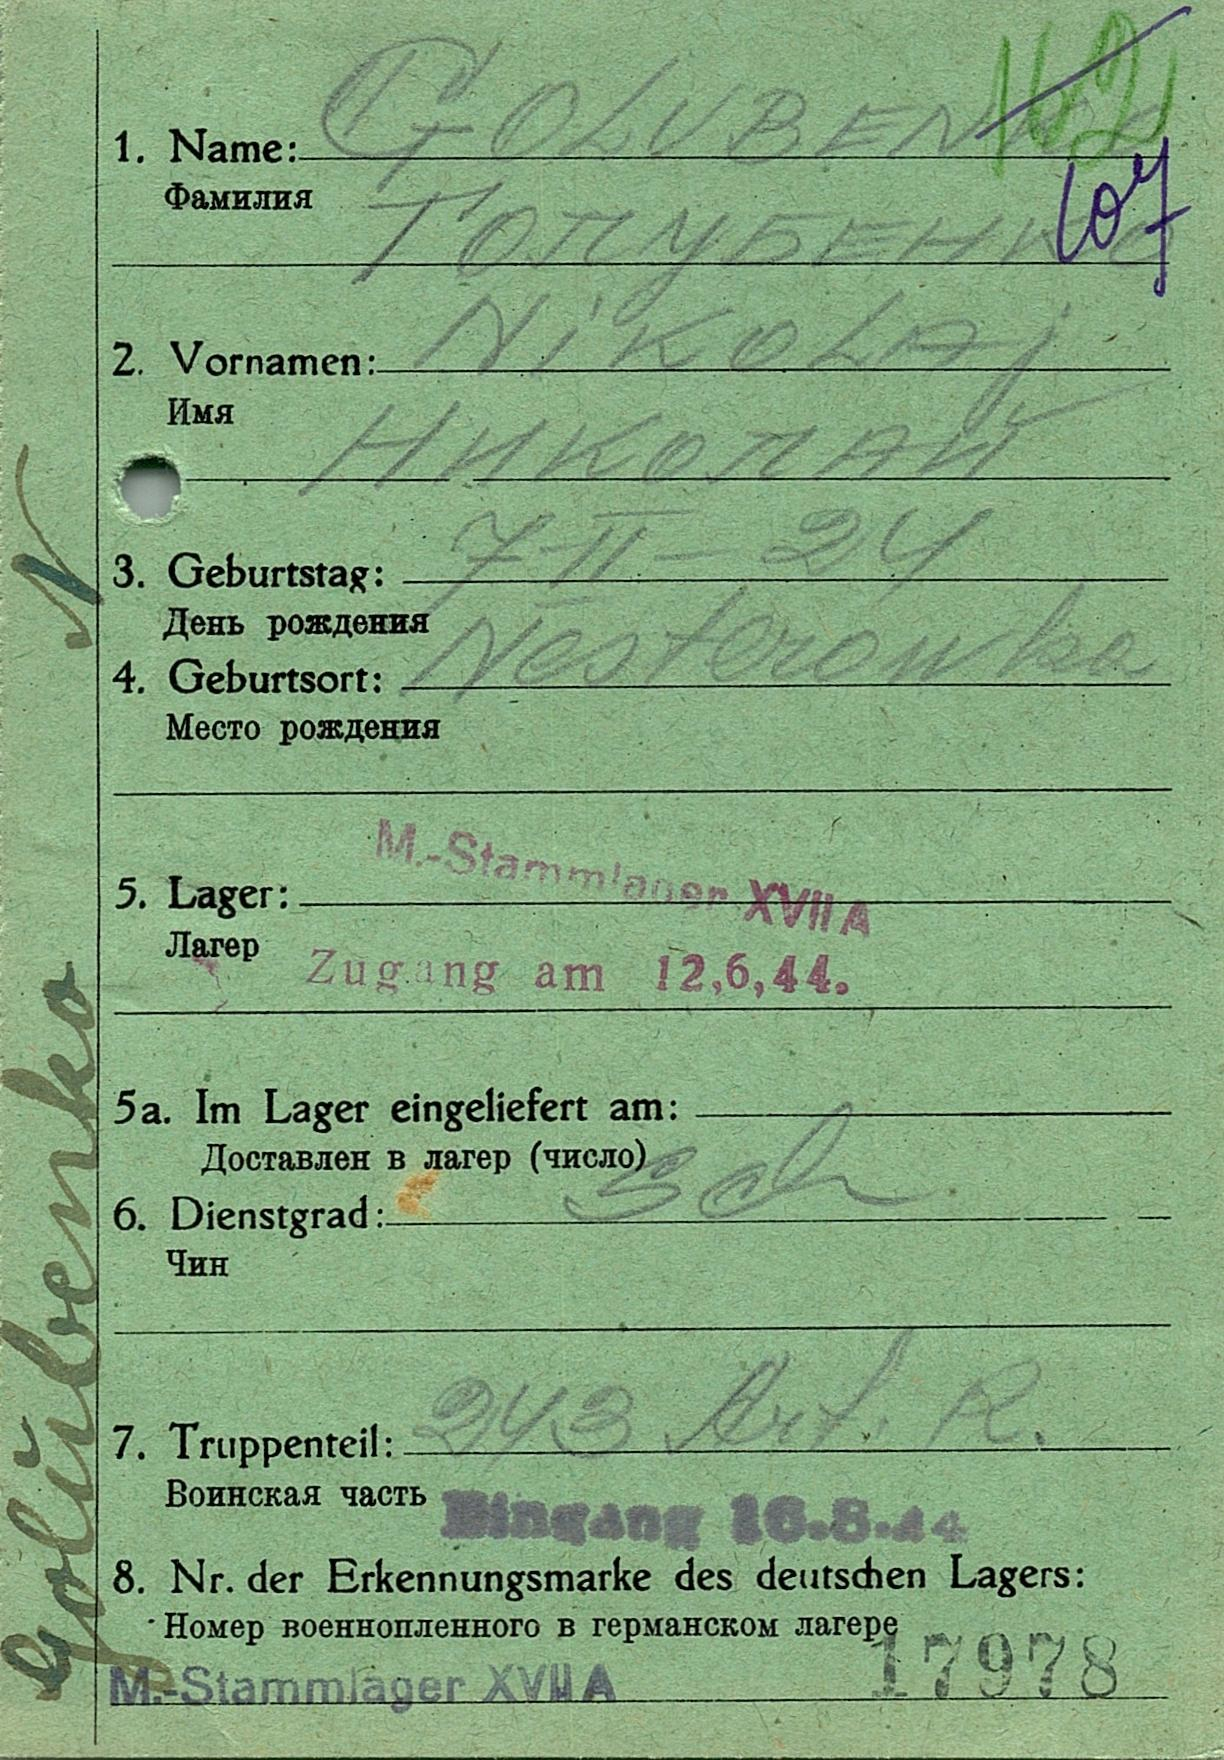 162
107
1. Name: GOLUBENKO
Фамилия
ГОЛУБЕНКО
2. Vornamen: NiKOLAj
Имя
НИКОЛАЙ
3. Geburtstag: 7-II-24
День рождения
4. Geburtsort: Nesterowka
Место рождения
M.-Stammlager XVII A
5. Lager:
Лагер
Zugang am 12,6,44.
5a. Im Lager eingeliefert am:
Доставлен в лагер (число)
6. Dienstgrad: Sol
Чин
7. Truppenteil: 243 Art. R.
Воинская часть
Eingang 16.8.44
8. Nr. der Erkennungsmarke des deutschen Lagers:
Номер военнопленного в германском лагере
17978
M.-Stammlager XVII A
Golubenko N